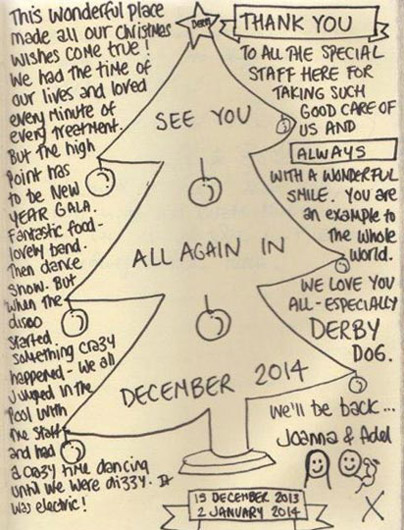 This wonderful place
made all our christmas
wishes come true!
We had the time of
our lives and loved
every minute of
every treatment.
But the high
point has
to be New
YEAR GALA.
Fantastic food-
lovely band.
Then dance
show. But
when the
disco
started
something crazy
happened - we all
jumped in the
Pool with
the staff
and had
a crazy time dancing
until we were dizzy. It
was electric!
Derby
SEE YOU
ALL AGAIN IN
DECEMBER 2014
THANK YOU
TO ALL THE SPECIAL
STAFF HERE FOR
TAKING SUCH
GOOD CARE OF
US AND
ALWAYS
WITH A WONDERFUL
SMILE. YOU ARE
an example to
the whole
world.
WE LOVE YOU
ALL - ESPECIALLY
DERBY
DOG.
We'll be back...
Joanna & Adel
X
19 DECEMBER 2013
2 JANUARY 2014